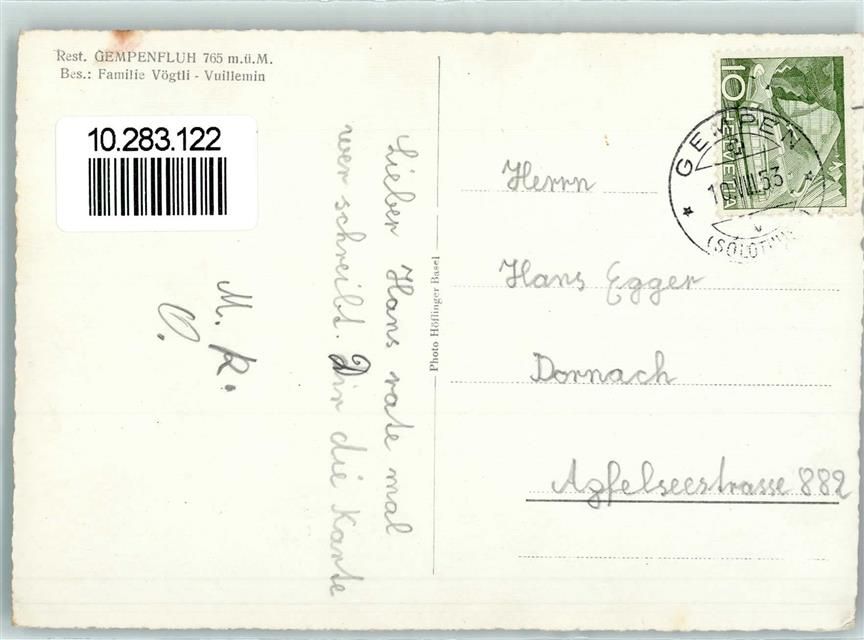 Rest. GEMPENFLUH 765 m.ü.M.
Bes.: Familie Vögtli - Vuillemin
10.283.122
Lieber Hans rate mal
wer schreibt. Dir die Karte
M. R.
O.
Photo Höflinger Basel
10
HELVETIA
GEMPEN
10.VIII.53
(SOLOTHURN)
Herrn
Hans Egger
Dornach
Apfelseestrasse 882